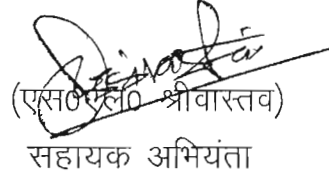 (एस0एल0 श्रीवास्तव)
सहायक अभियंता